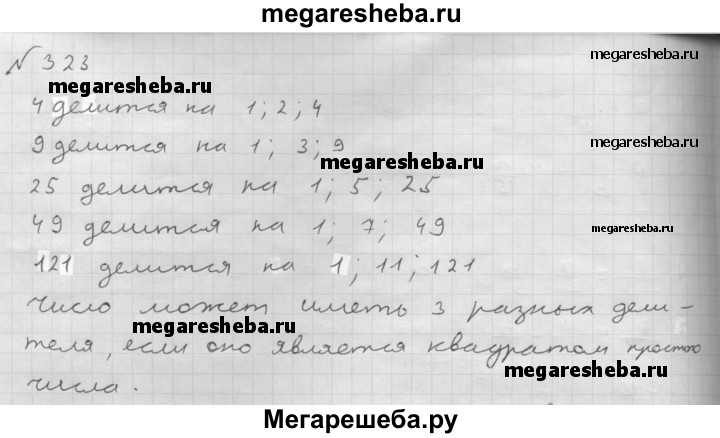 megaresheba.ru
№ 323
megaresheba.ru
megaresheba.ru
4 делится на 1; 2; 4
9 делится на 1; 3; 9
megaresheba.ru
megaresheba.ru
25 делится на 1; 5; 25
49 делится на 1; 7; 49
megaresheba.ru
121 делится на 1; 11; 121
число может иметь 3 разных дели-
megaresheba.ru
теля, если оно является квадратом простого
megaresheba.ru
числа.
Мегарешеба.ру